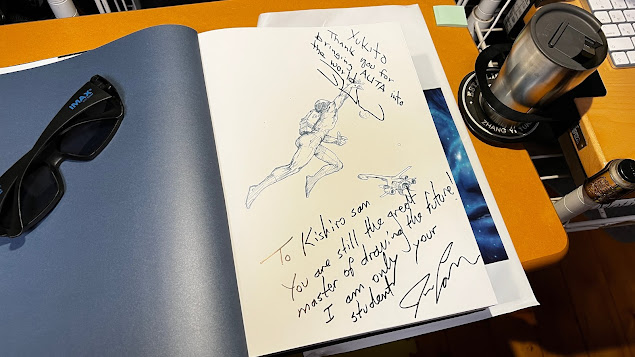 Yukito
Thank you for
bringing ALITA into
the world
To Kishiro san
You are still the great
master of drawing the future!
I am only your
student
IMAX
ZHANG